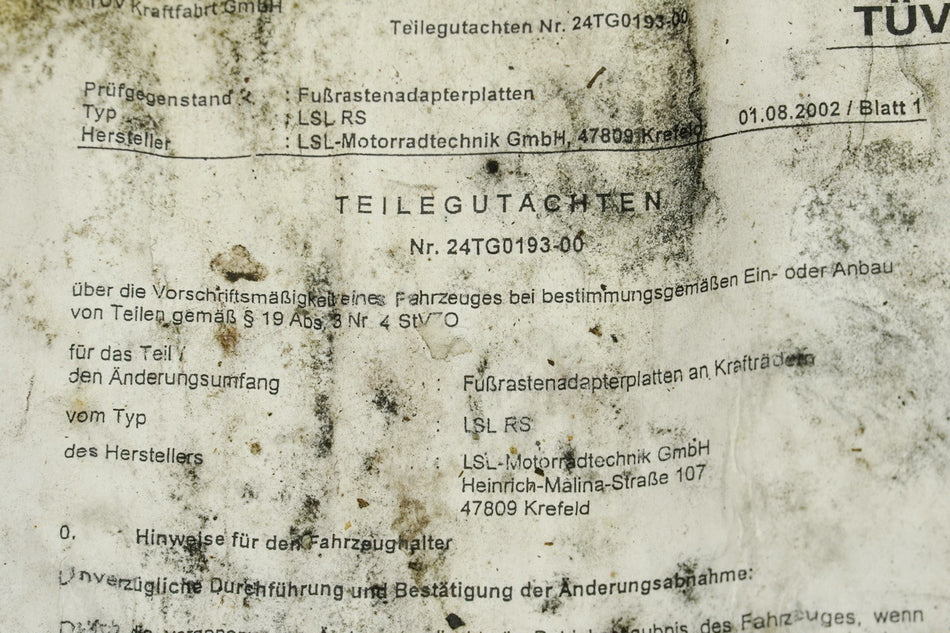 TÜV Kraftfahrt GmbH
Teilegutachten Nr. 24TG0193-00
TÜV
Prüfgegenstand : Fußrastenadapterplatten
Typ : LSL RS
Hersteller : LSL-Motorradtechnik GmbH, 47809 Krefeld
01.08.2002 / Blatt 1
TEILEGUTACHTEN
Nr. 24TG0193-00
über die Vorschriftsmäßigkeit eines Fahrzeuges bei bestimmungsgemäßen Ein- oder Anbau
von Teilen gemäß § 19 Abs. 3 Nr. 4 StVZO
für das Teil /
den Änderungsumfang : Fußrastenadapterplatten an Krafträdern
vom Typ : LSL RS
des Herstellers : LSL-Motorradtechnik GmbH
Heinrich-Malina-Straße 107
47809 Krefeld
0. Hinweise für den Fahrzeughalter
Unverzügliche Durchführung und Bestätigung der Änderungsabnahme:
Durch die des Fahrzeuges, wenn